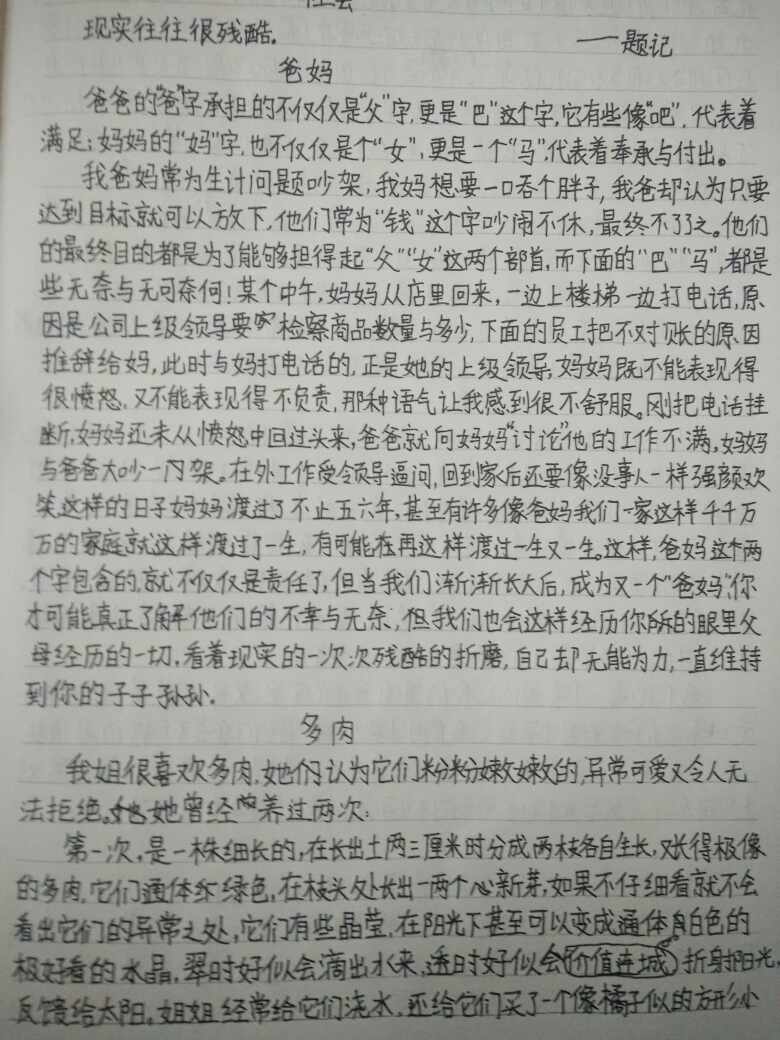 社会
现实往往很残酷.
——题记
爸妈
爸爸的“爸”字承担的不仅仅是“父”字,更是“巴”这个字,它有些像“吧”,代表着
满足;妈妈的“妈”字,也不仅仅是个“女”,更是一个“马”,代表着奉承与付出。
我爸妈常为生计问题吵架,我妈想要一口吞个胖子,我爸却认为只要
达到目标就可以放下,他们常为“钱”这个字吵闹不休,最终不了了之。他们
的最终目的都是为了能够担得起“父”“女”这两个部首,而下面的“巴”“马”,都是
些无奈与无可奈何!某个中午,妈妈从店里回来,一边上楼梯一边打电话,原
因是公司上级领导要求检察商品数量与多少,下面的员工把不对账的原因
推辞给妈,此时与妈打电话的,正是她的上级领导,妈妈既不能表现得
很愤怒,又不能表现得不负责,那种语气让我感到很不舒服。刚把电话挂
断,妈妈还未从愤怒中回过头来,爸爸就向妈妈“讨论”他的工作不满,妈妈
与爸爸大吵一门架。在外工作受领导逼问,回到家后还要像没事人一样强颜欢
笑,这样的日子妈妈渡过了不止五六年,甚至有许多像爸妈我们一家这样千千万
万的家庭就这样渡过了一生,有可能在再这样渡过一生又一生。这样,爸妈这个两
个字包含的,就不仅仅是责任了,但当我们渐渐长大后,成为又一个“爸妈”,你
才可能真正了解他们的不幸与无奈,但我们也会这样经历你所的眼里父
母经历的一切,看着现实的一次次残酷的折磨,自己却无能为力,一直维持
到你的子子孙孙.
多肉
我姐很喜欢多肉,她们认为它们粉粉嫩嫩的,异常可爱又令人无
法拒绝。她曾经养过两次:
第一次,是一株细长的,在长出土两三厘米时分成两枝各自生长,对长得极像
的多肉,它们通体绿色,在枝头处长出一两个心新芽,如果不仔细看就不会
看出它们的异常之处,它们有些晶莹,在阳光下甚至可以变成通体白色的
极好看的水晶,翠时好似会滴出水来,透时好似会价值连城折射阳光,
反馈给太阳。姐姐经常给它们浇水,还给它们买了一个像橘子似的方形小